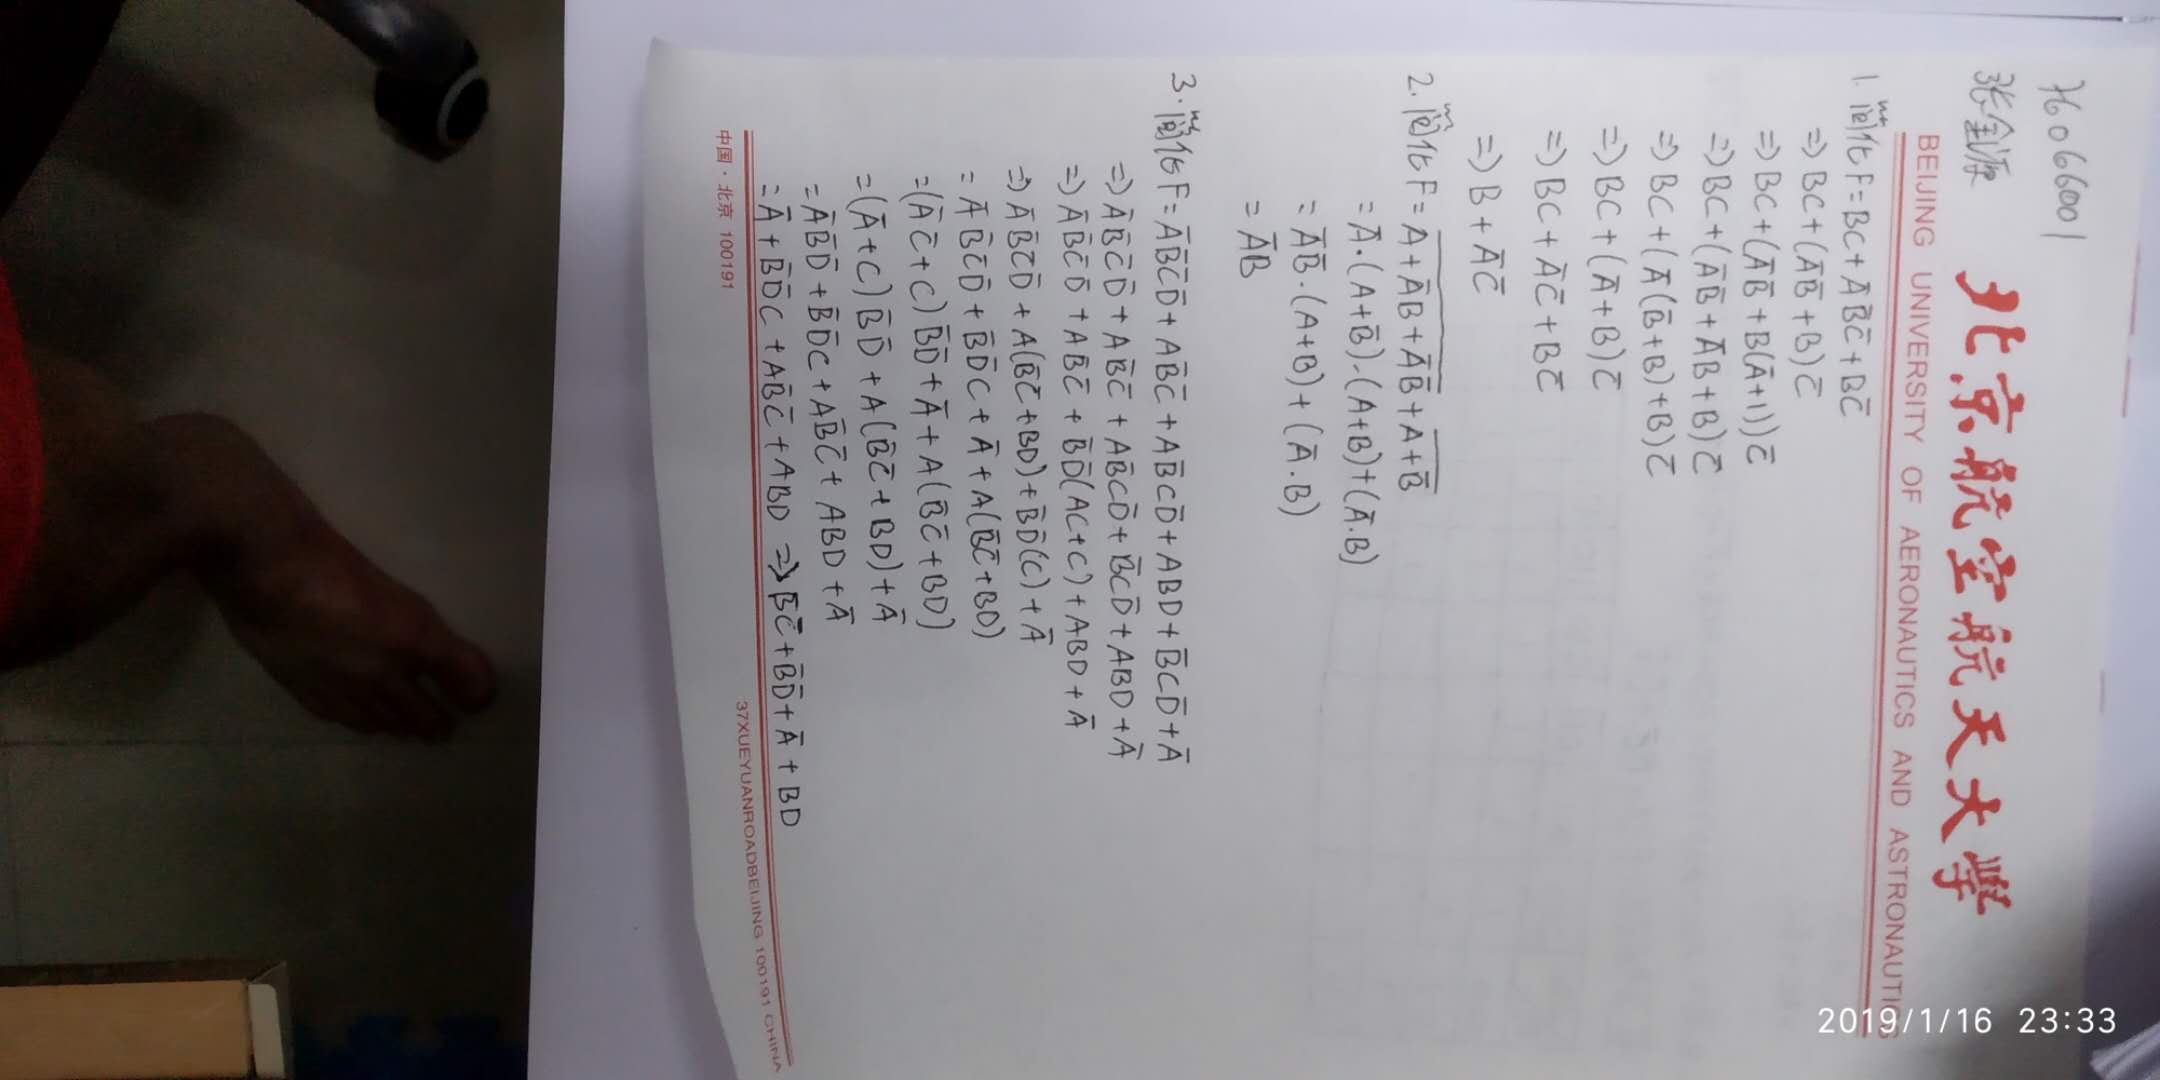 J6066001
北京航空航天大学
BEIJING UNIVERSITY OF AERONAUTICS AND ASTRONAUTICS
1. 简化 F = BC + A̅B̅C̅ + BC̅
⇒ BC + (A̅B̅ + B)C̅
⇒ BC + (A̅B̅ + B(A̅+1))C̅
⇒ BC + (A̅B̅ + A̅B + B)C̅
⇒ BC + (A̅(B̅+B)+B)C̅
⇒ BC + (A̅+B)C̅
⇒ BC + A̅C̅ + BC̅
⇒ B + A̅C̅
2. 简化 F = A + A̅B + A̅B̅ + A+B̅
= A̅·(A+B̅)·(A+B)+(A̅·B)
= A̅B̅·(A+B)+(A̅·B)
= A̅B
3. 简化 F = A̅B̅C̅D̅ + AB̅C̅ + AB̅CD̅ + ABD + B̅CD̅ + A̅
⇒ A̅B̅C̅D̅ + AB̅C̅ + AB̅CD̅ + B̅CD̅ + ABD + A̅
⇒ A̅B̅C̅D̅ + AB̅C̅ + B̅D̅(AC+C) + ABD + A̅
⇒ A̅B̅C̅D̅ + A(B̅C̅+BD) + B̅D̅(C) + A̅
= A̅B̅C̅D̅ + B̅D̅C + A̅ + A(B̅C̅+BD)
= (A̅C̅+C)B̅D̅ + A̅ + A(B̅C̅+BD)
= (A̅+C)B̅D̅ + A(B̅C̅+BD) + A̅
= A̅B̅D̅ + B̅D̅C + AB̅C̅ + ABD + A̅
= A̅ + B̅D̅C + AB̅C̅ + ABD ⇒ B̅C̅ + B̅D̅ + A̅ + BD
中国·北京 100191
37XUEYUANROADBEIJING 100191 CHINA
2019/1/16 23:33